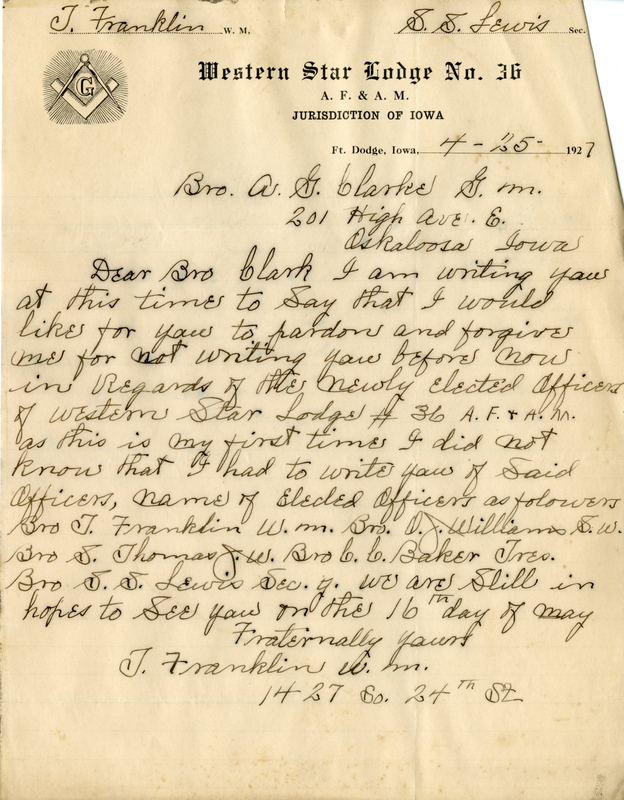 T. Franklin W. M. S. S. Lewis Sec.
G
Western Star Lodge No. 36
A. F. & A. M.
JURISDICTION OF IOWA
Ft. Dodge, Iowa, 4-25- 1927
Bro. A. G. Clarke G. M.
201 High Ave. E.
Oskaloosa Iowa
Dear Bro Clark I am writing yaw
at this time to Say that I would
like for yaw to pardon and forgive
me for not writing yaw before now
in Regards of the Newly Elected Officers
of Western Star Lodge # 36 A. F. & A. M.
as this is my first time I did not
know that I had to write yaw of Said
Officers, name of Elected Officers as folowers
Bro T. Franklin W. m. Bro. J. Williams S. W.
Bro S. Thomas J. W. Bro C. C. Baker Tres.
Bro S. S. Lewis Sec. y. we are Still in
hopes to See yaw on the 16th day of may
Fraternally yaurs
T. Franklin W. m.
1427 So. 24th St